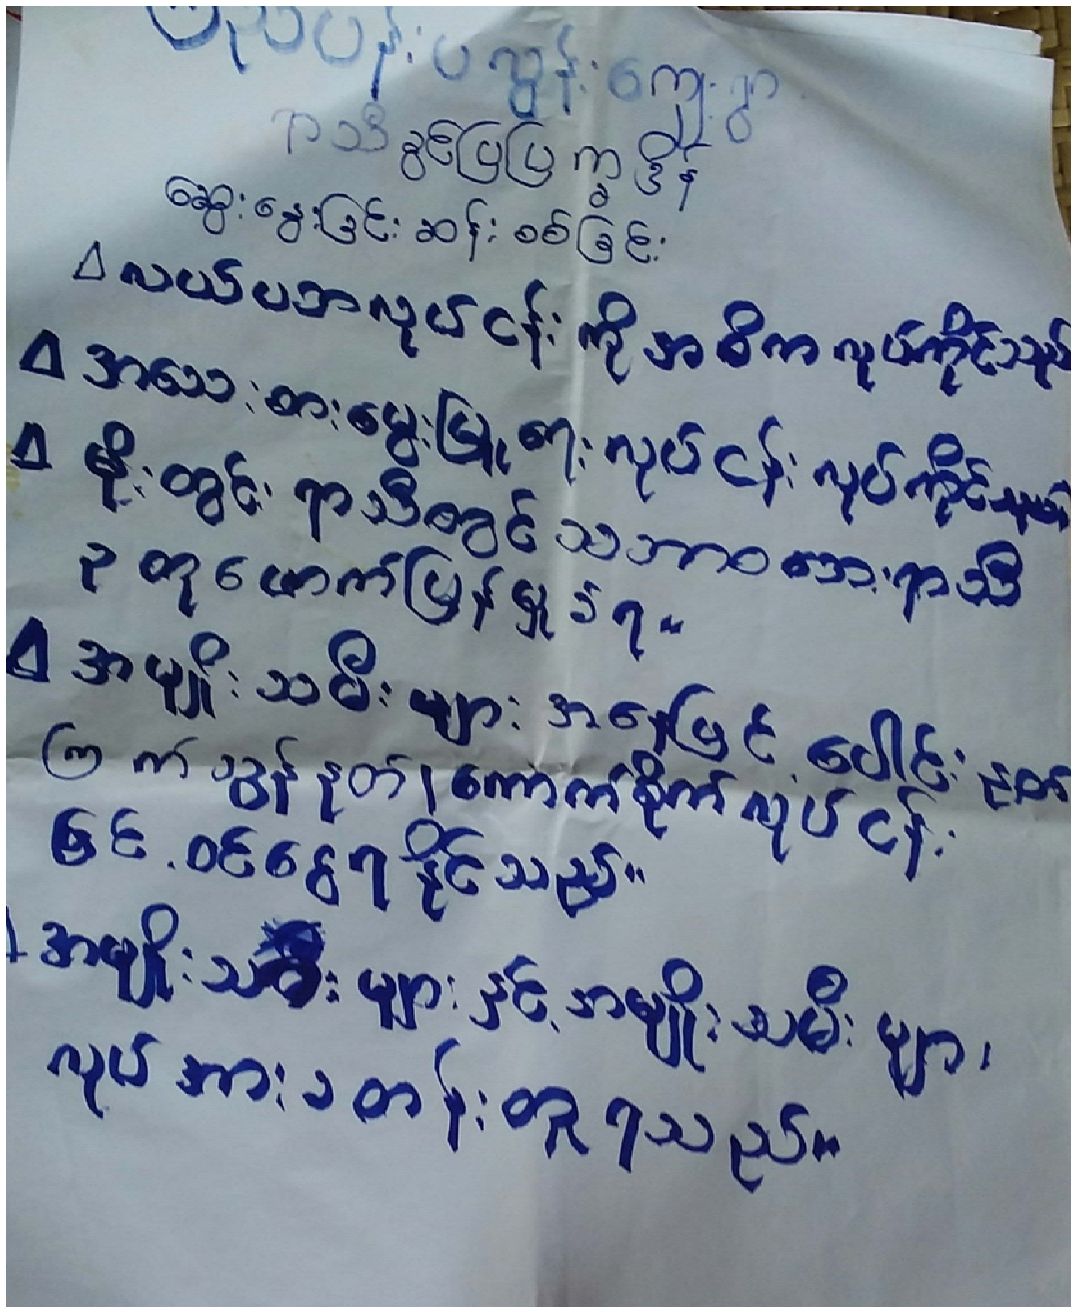 ပန်းပလွန်းကျေးရွာ
ရာသီခွင်ပြပြက္ခဒိန်
ဆွေးနွေးခြင်းဆန်းစစ်ခြင်း
Δ လယ်ယာလုပ်ငန်းကို အဓိကလုပ်ကိုင်သည်
Δ အသေးစားမွေးမြူရေးလုပ်ငန်း လုပ်ကိုင်သည်
Δ မိုးတွင်းရာသီတွင် သဘာဝဘေးရာသီ
ဥတုဖောက်ပြန်မှုခံရ။
Δ အမျိုးသမီးများ အနေဖြင့် ပေါင်းနုတ်
ကြက်သွန်နုတ်၊ ကောက်စိုက်လုပ်ငန်း
ဖြင့် ဝင်ငွေရနိုင်သည်။
အမျိုးသမီးများနှင့် အမျိုးသမီးများ
လုပ်အားခတန်းတူရသည်။